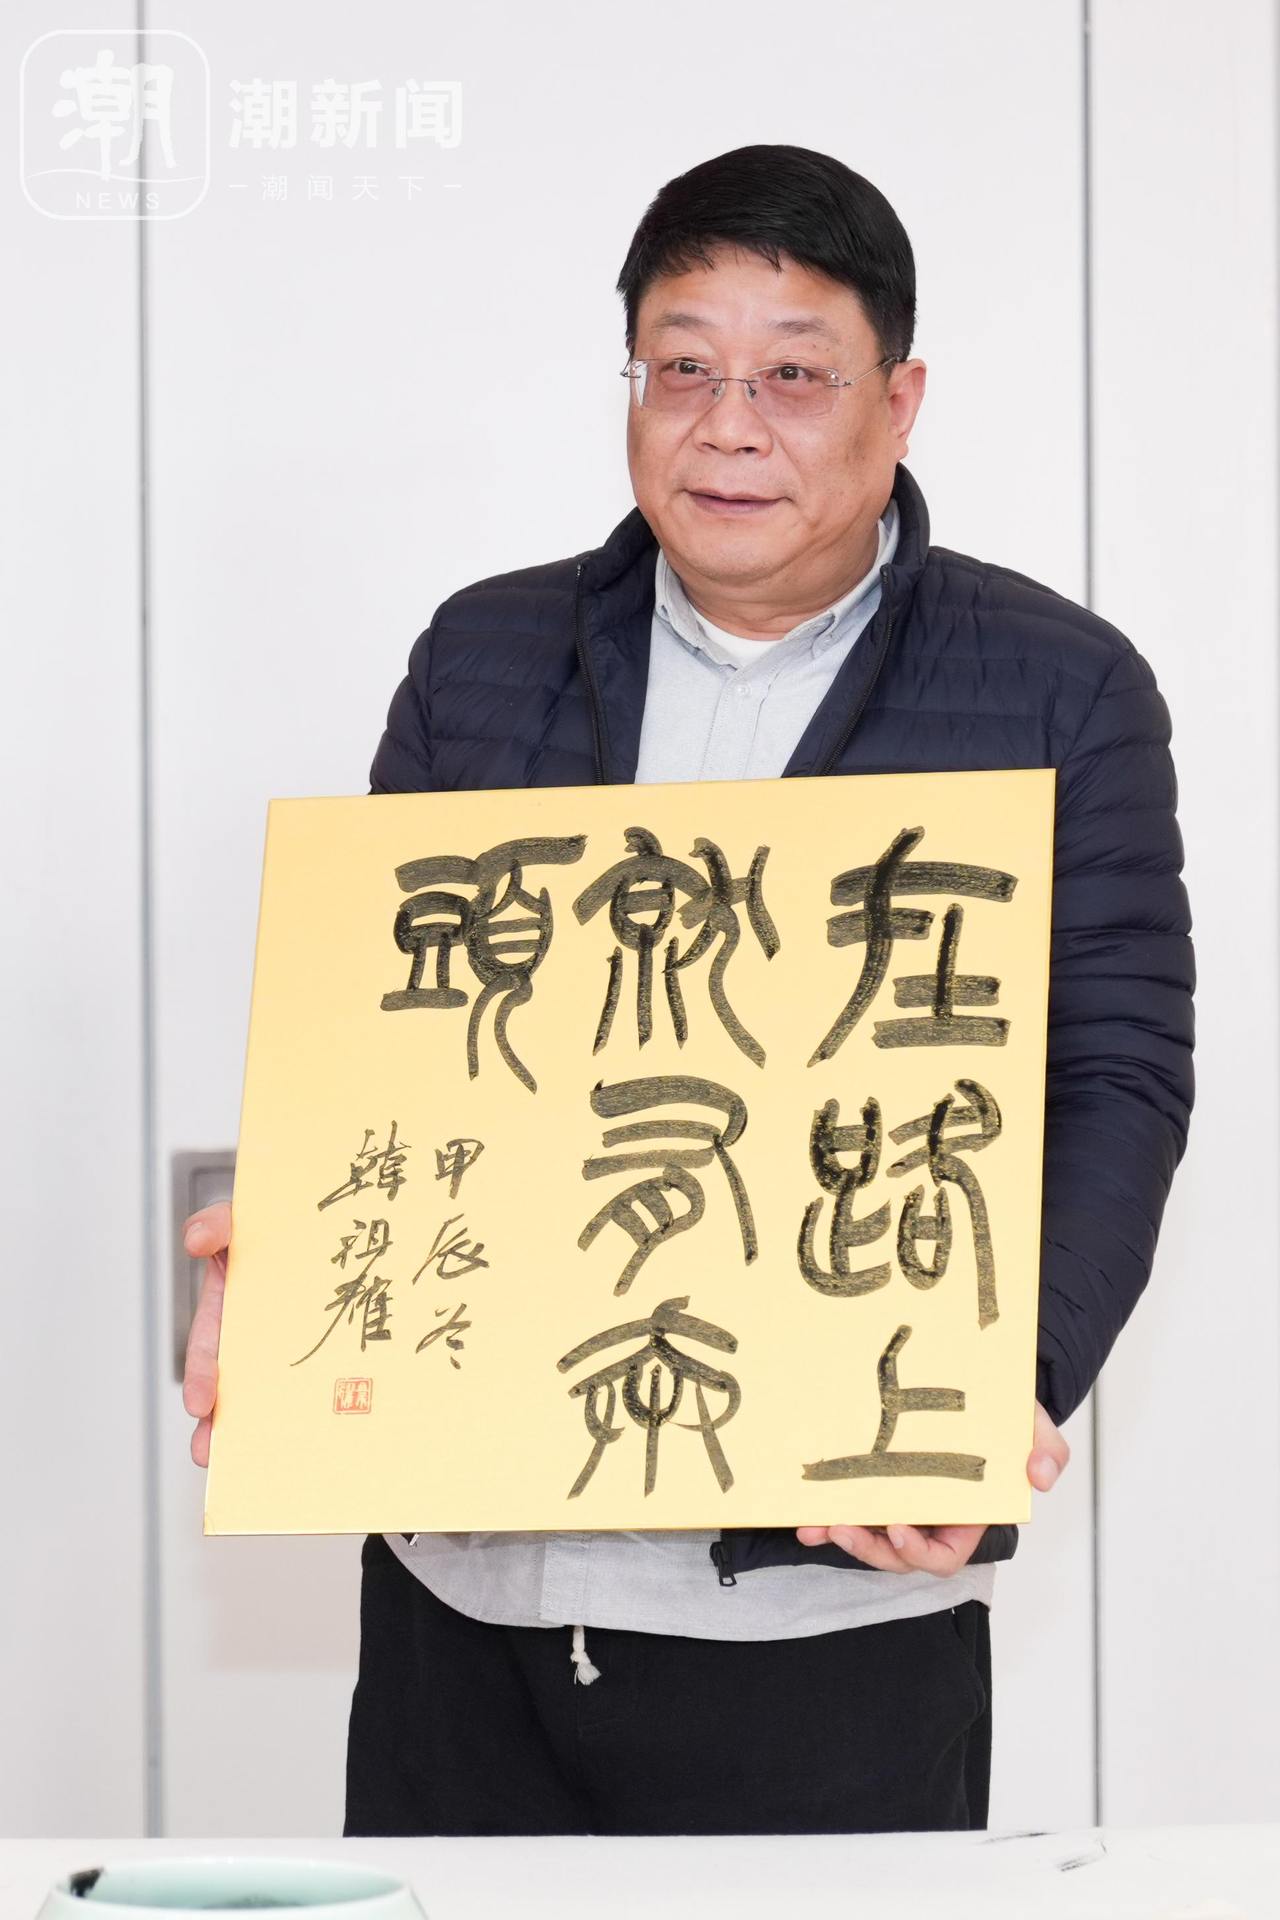 潮
NEWS
潮新闻
－潮闻天下－
在路上
就有奔
頭
甲辰冬
韓祖耀